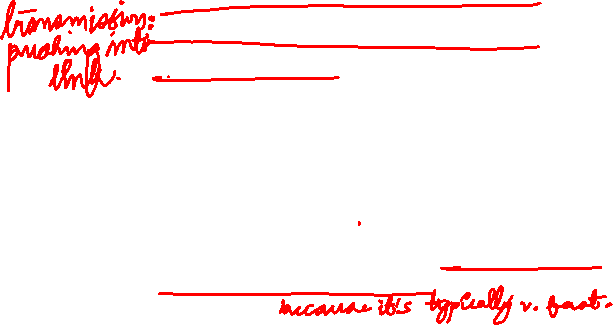 transmission:
pushing into
link.
because it's typically v. fast.